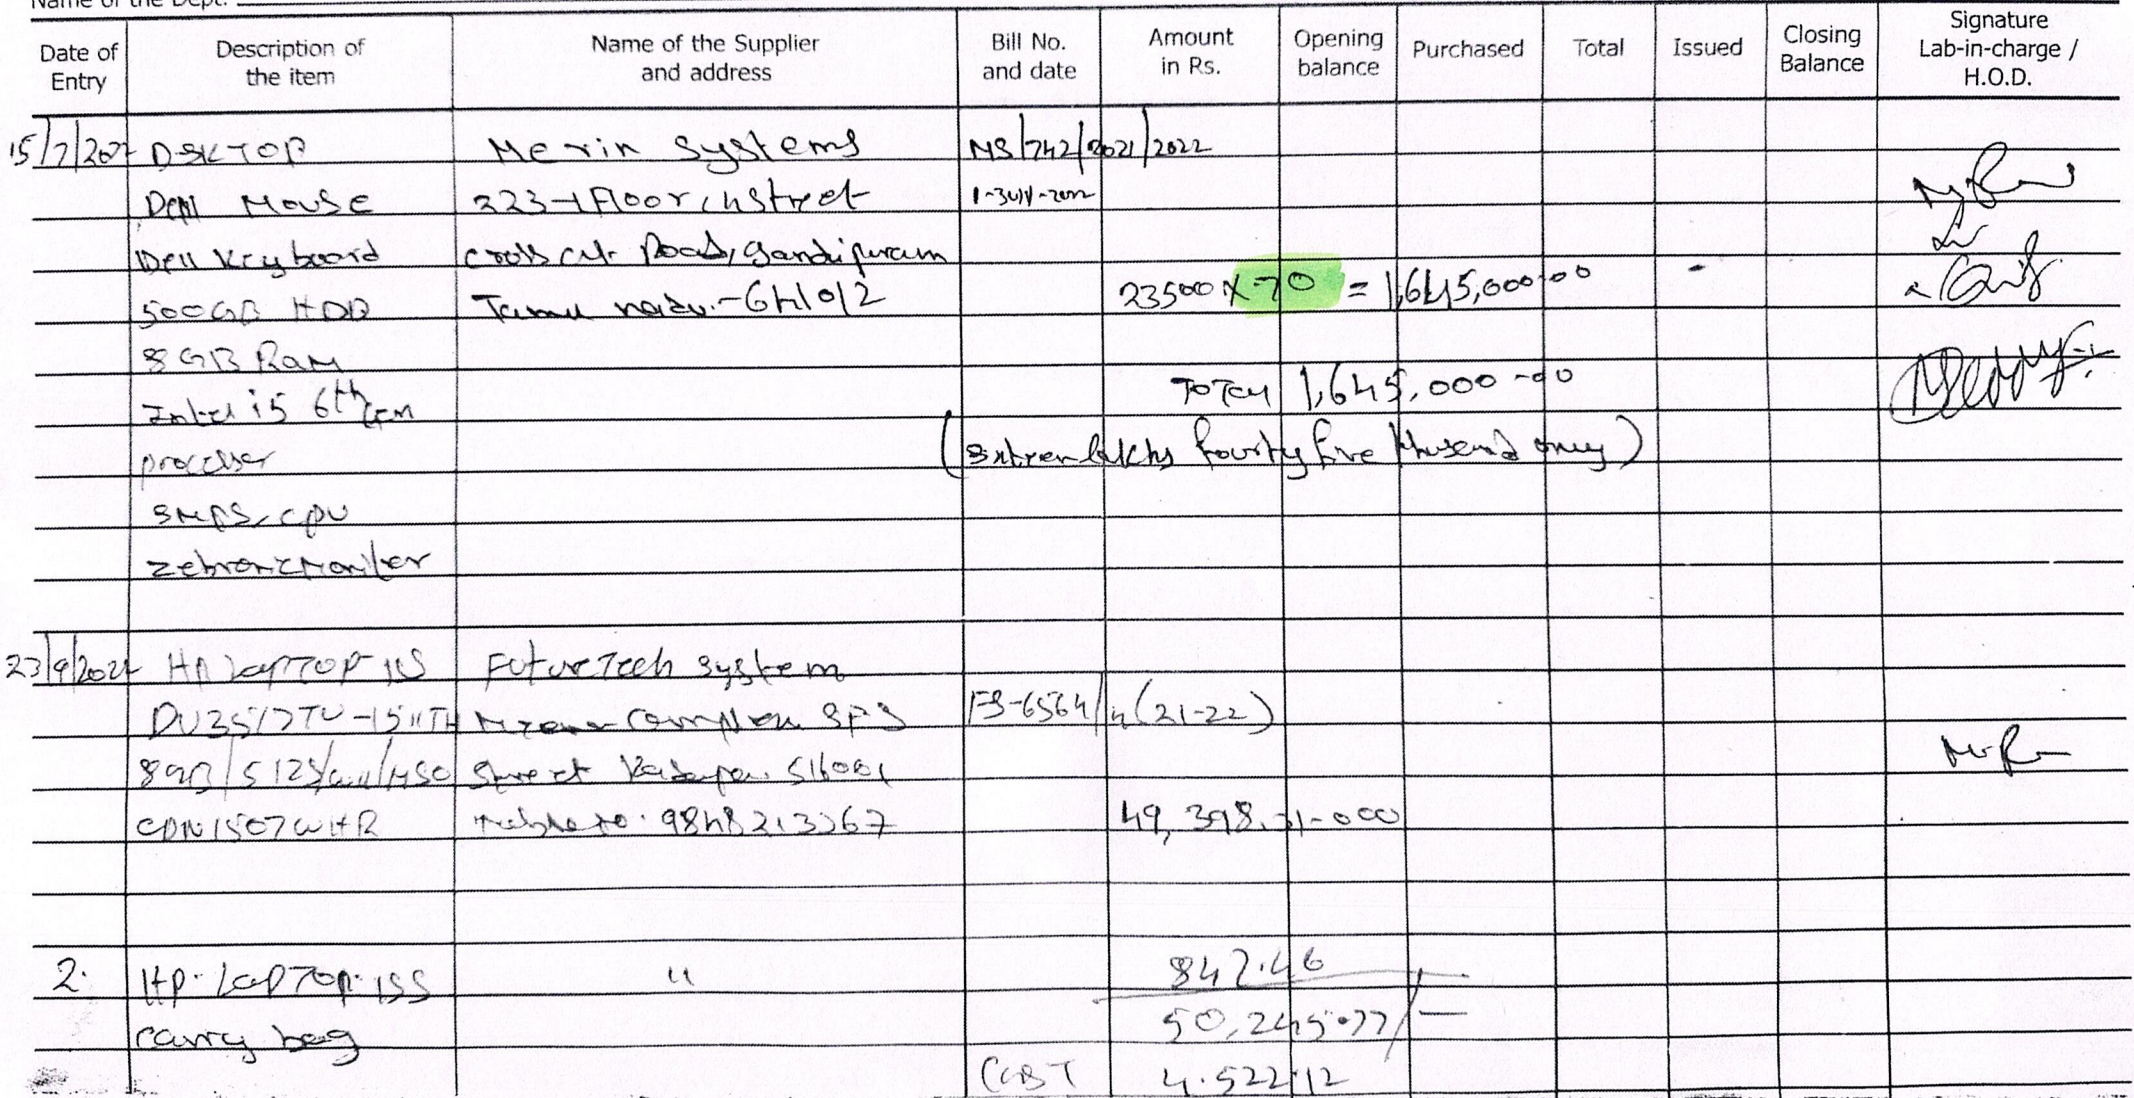 Name of the Dept.
Date of Entry Description of the item Name of the Supplier and address Bill No. and date Amount in Rs. Opening balance Purchased Total Issued Closing Balance Signature Lab-in-charge / H.O.D.
15/7/202 DSKTOP Merin Systems MS/742/2021/2022
Dell Mouse 223-1 Floor Street
Dell Keyboard Cross cut Road, Gandipuram
500GB HDD Tamil nadu - 641012 23500 X 70 = 1,645,000.00
8 GB Ram
Intel i5 6th Gen TOTAL 1,645,000-00
processer (Sixteen lakhs fourty five thusend only)
SMPS, CPU
Zebronic Moniter
23/9/202 HP LAPTOP 15S Future Tech System
DU3517TU-15 11TH Complex SFS FS-6564/ (21-22)
8GB/512 Street Kadapa 516001
9848213367 49,398.31-000
2. HP. LAPTOP. 15S " 847.46
Carry bag 50,245.77/-
CGST 4.522.12